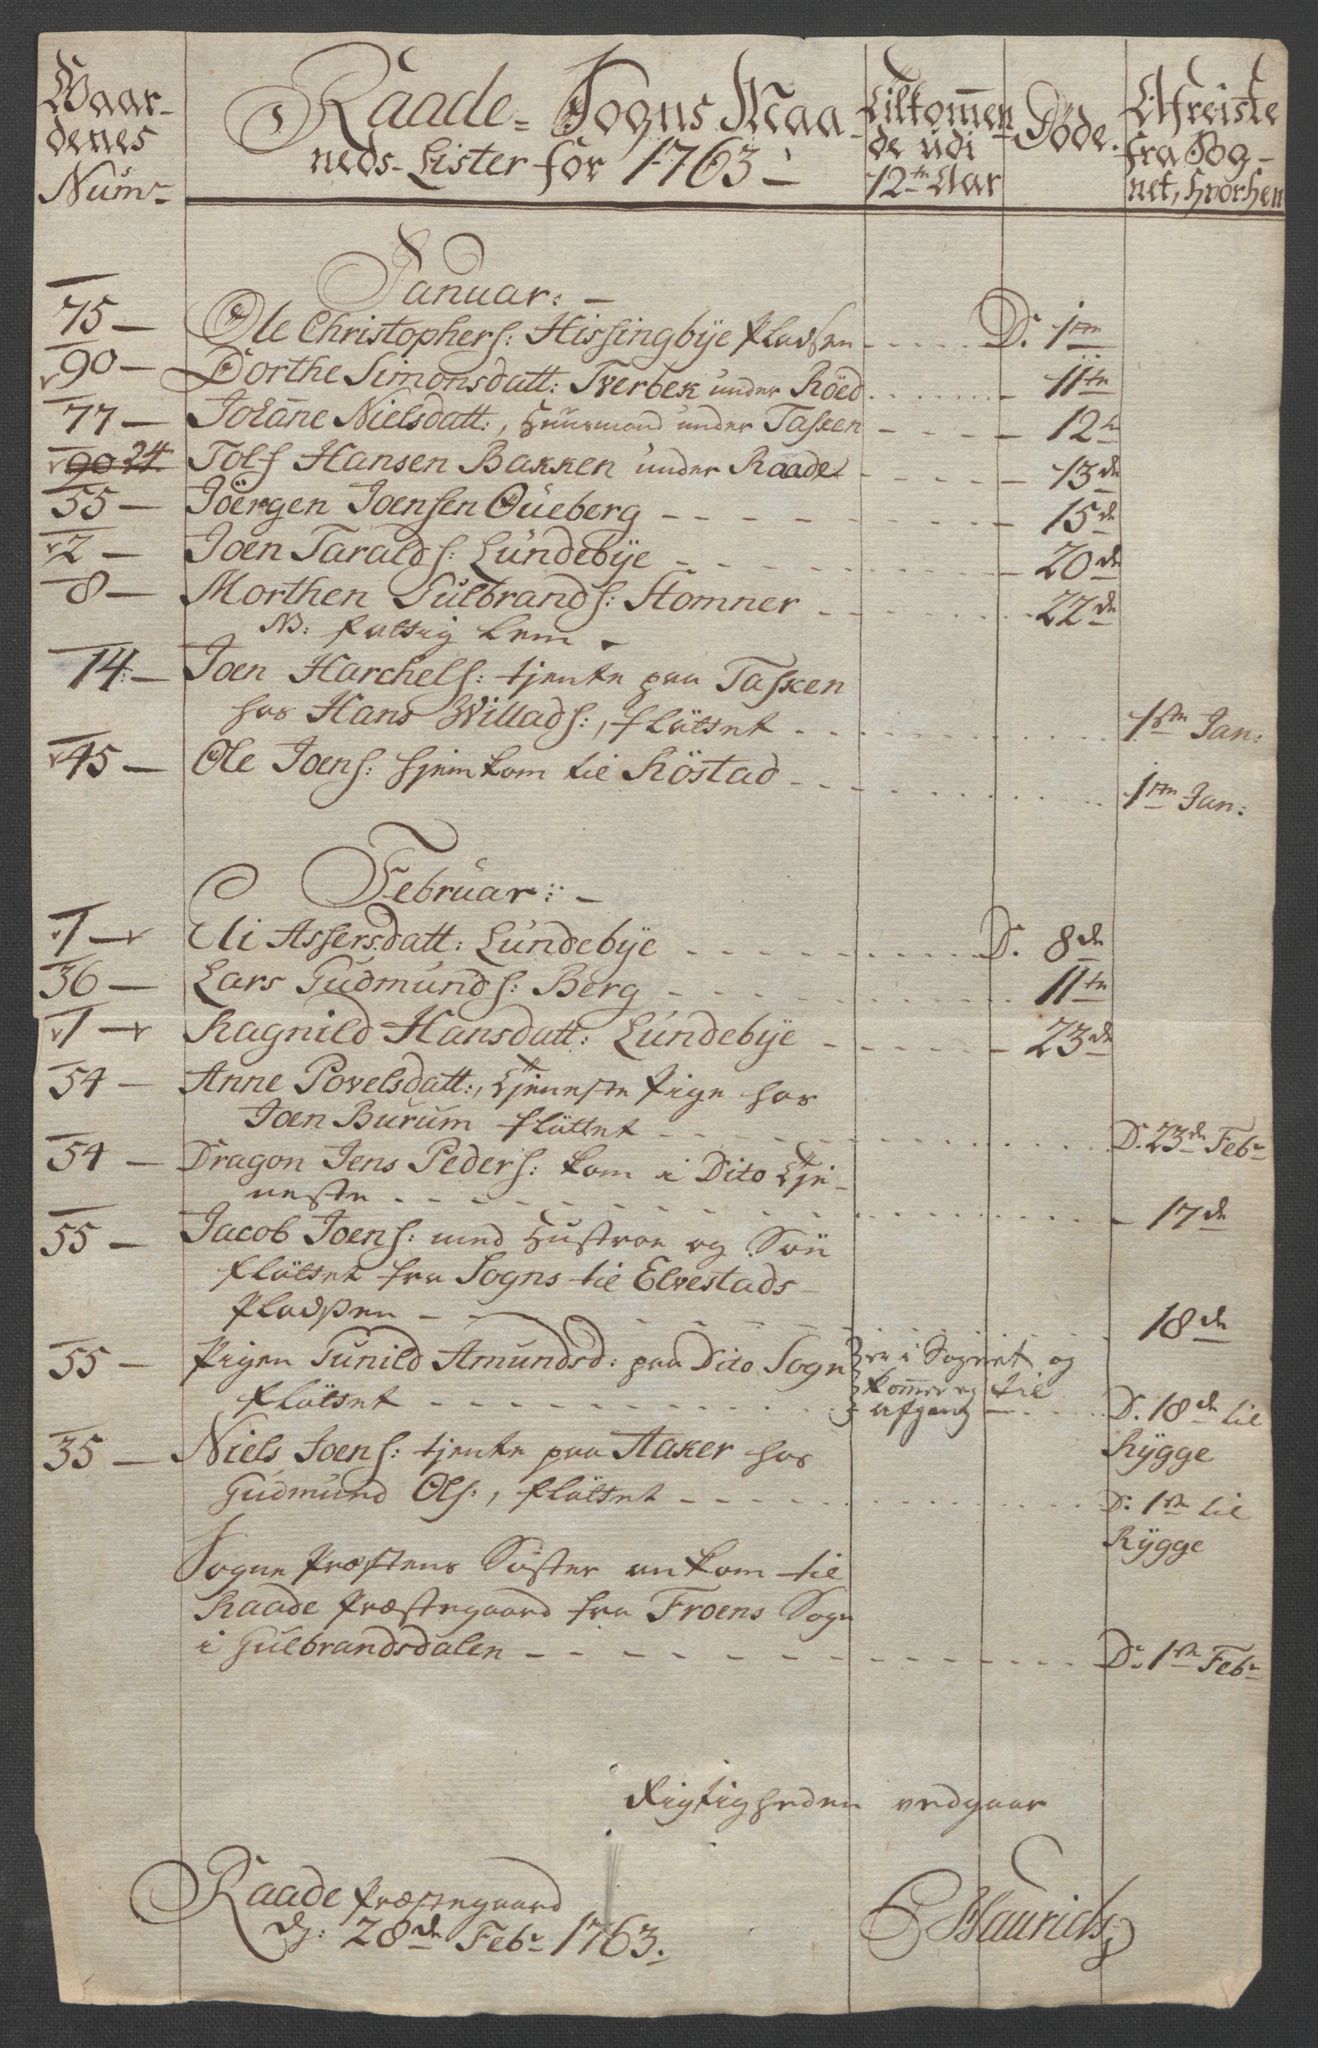 Gaar-
denes
Num-
Raade-Sogns Maa-
neds-Lister for 1763
Tilkommen-
de udi
12te Aar
Døde.
Afreiste
fra Sog-
net, hvorhen
Januar: -
75 - Ole Christophers: Hissingbye Pladsen - - - D. 1ste
90 - Dorthe Simonsdatt: Tverbek under Röed - - - 11te
77 - Johañe Nielsdatt:, Huusmand under Tasken - - - 12te
90 24. Tolf Hansen Bakken under Raade - - - 13de
55 - Joërgen Joensen Oüeberg - - - 15de
2 - Joen Taralds: Lundebÿe - - - 20de
8 - Morthen Gulbrands: Stomner - - - 22de
NB: fattig Lem
14 - Joen Harchels: tjente paa Tasken
hos Hans Willads:, flÿttet - - - 1ste Jan:
45 - Ole Joens: hjemkom til Röstad - - - 1ste Jan:
Februar: -
1 - Eli Assersdatt: Lundebÿe - - - D. 8de
36 - Lars Gudmunds: Berg - - - 11te
1 - Ragnild Hansdatt: Lundebÿe - - - 23de
54 - Anne Povelsdatt:, Tjeneste Pige hos
Joen Burum flÿttet - - - D. 23de Febr
54 - Dragon Jens Peders: kom i Dito Tje-
neste - - - 17de
55 - Jacob Joens: med Hustroe og Sön
flÿttet fra Sogns til Elvestads-
Pladsen - - - 18de
55 - Pigen Gunild Amundsd: paa Dito Sogn
er i Sognet og
flÿttet - - -
kommer ej til
afgang - - - D. 18de til
Rÿgge
35 - Niels Joens: tjente paa Aaker hos
Gudmund Ols:, flÿttet - - - D: 1ste til
Rÿgge
Sogne Præstens Söster ankom til
Raade Præstegaard fra Froens Sogn
i Gulbrandsdalen - - - D: 1ste Febr
Rigtigheden vedgaar
Raade Præstegaard
d: 28de Febr 1763.
Maurichs